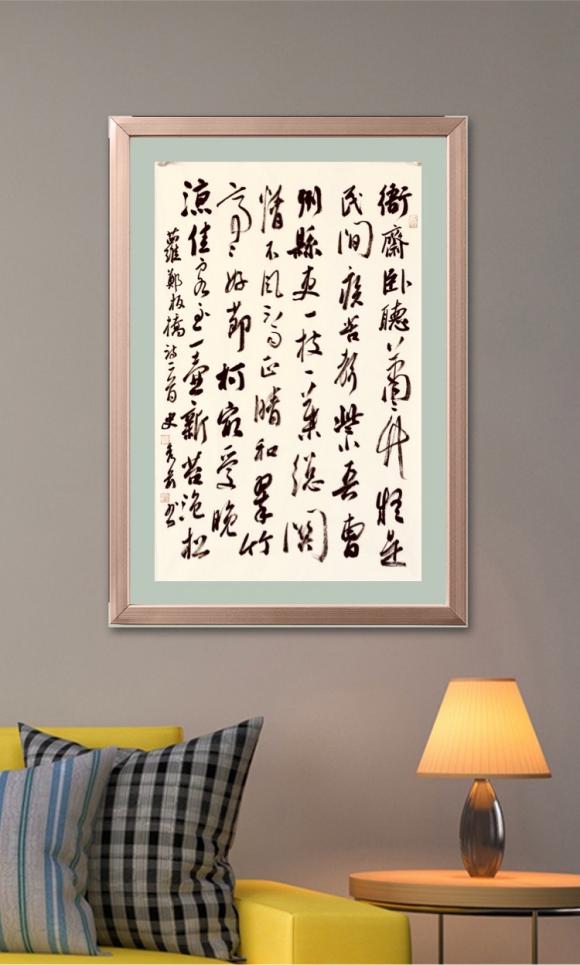 衙齋卧聽蕭〻竹疑是
民间疾苦聲些小吾曹
州縣吏一枝一葉總関
情不風不雨正晴和翠竹
亭〻好節柯最爱晚
凉佳客至一壺新茗泡松
蘿 鄭板橋詩二首 史